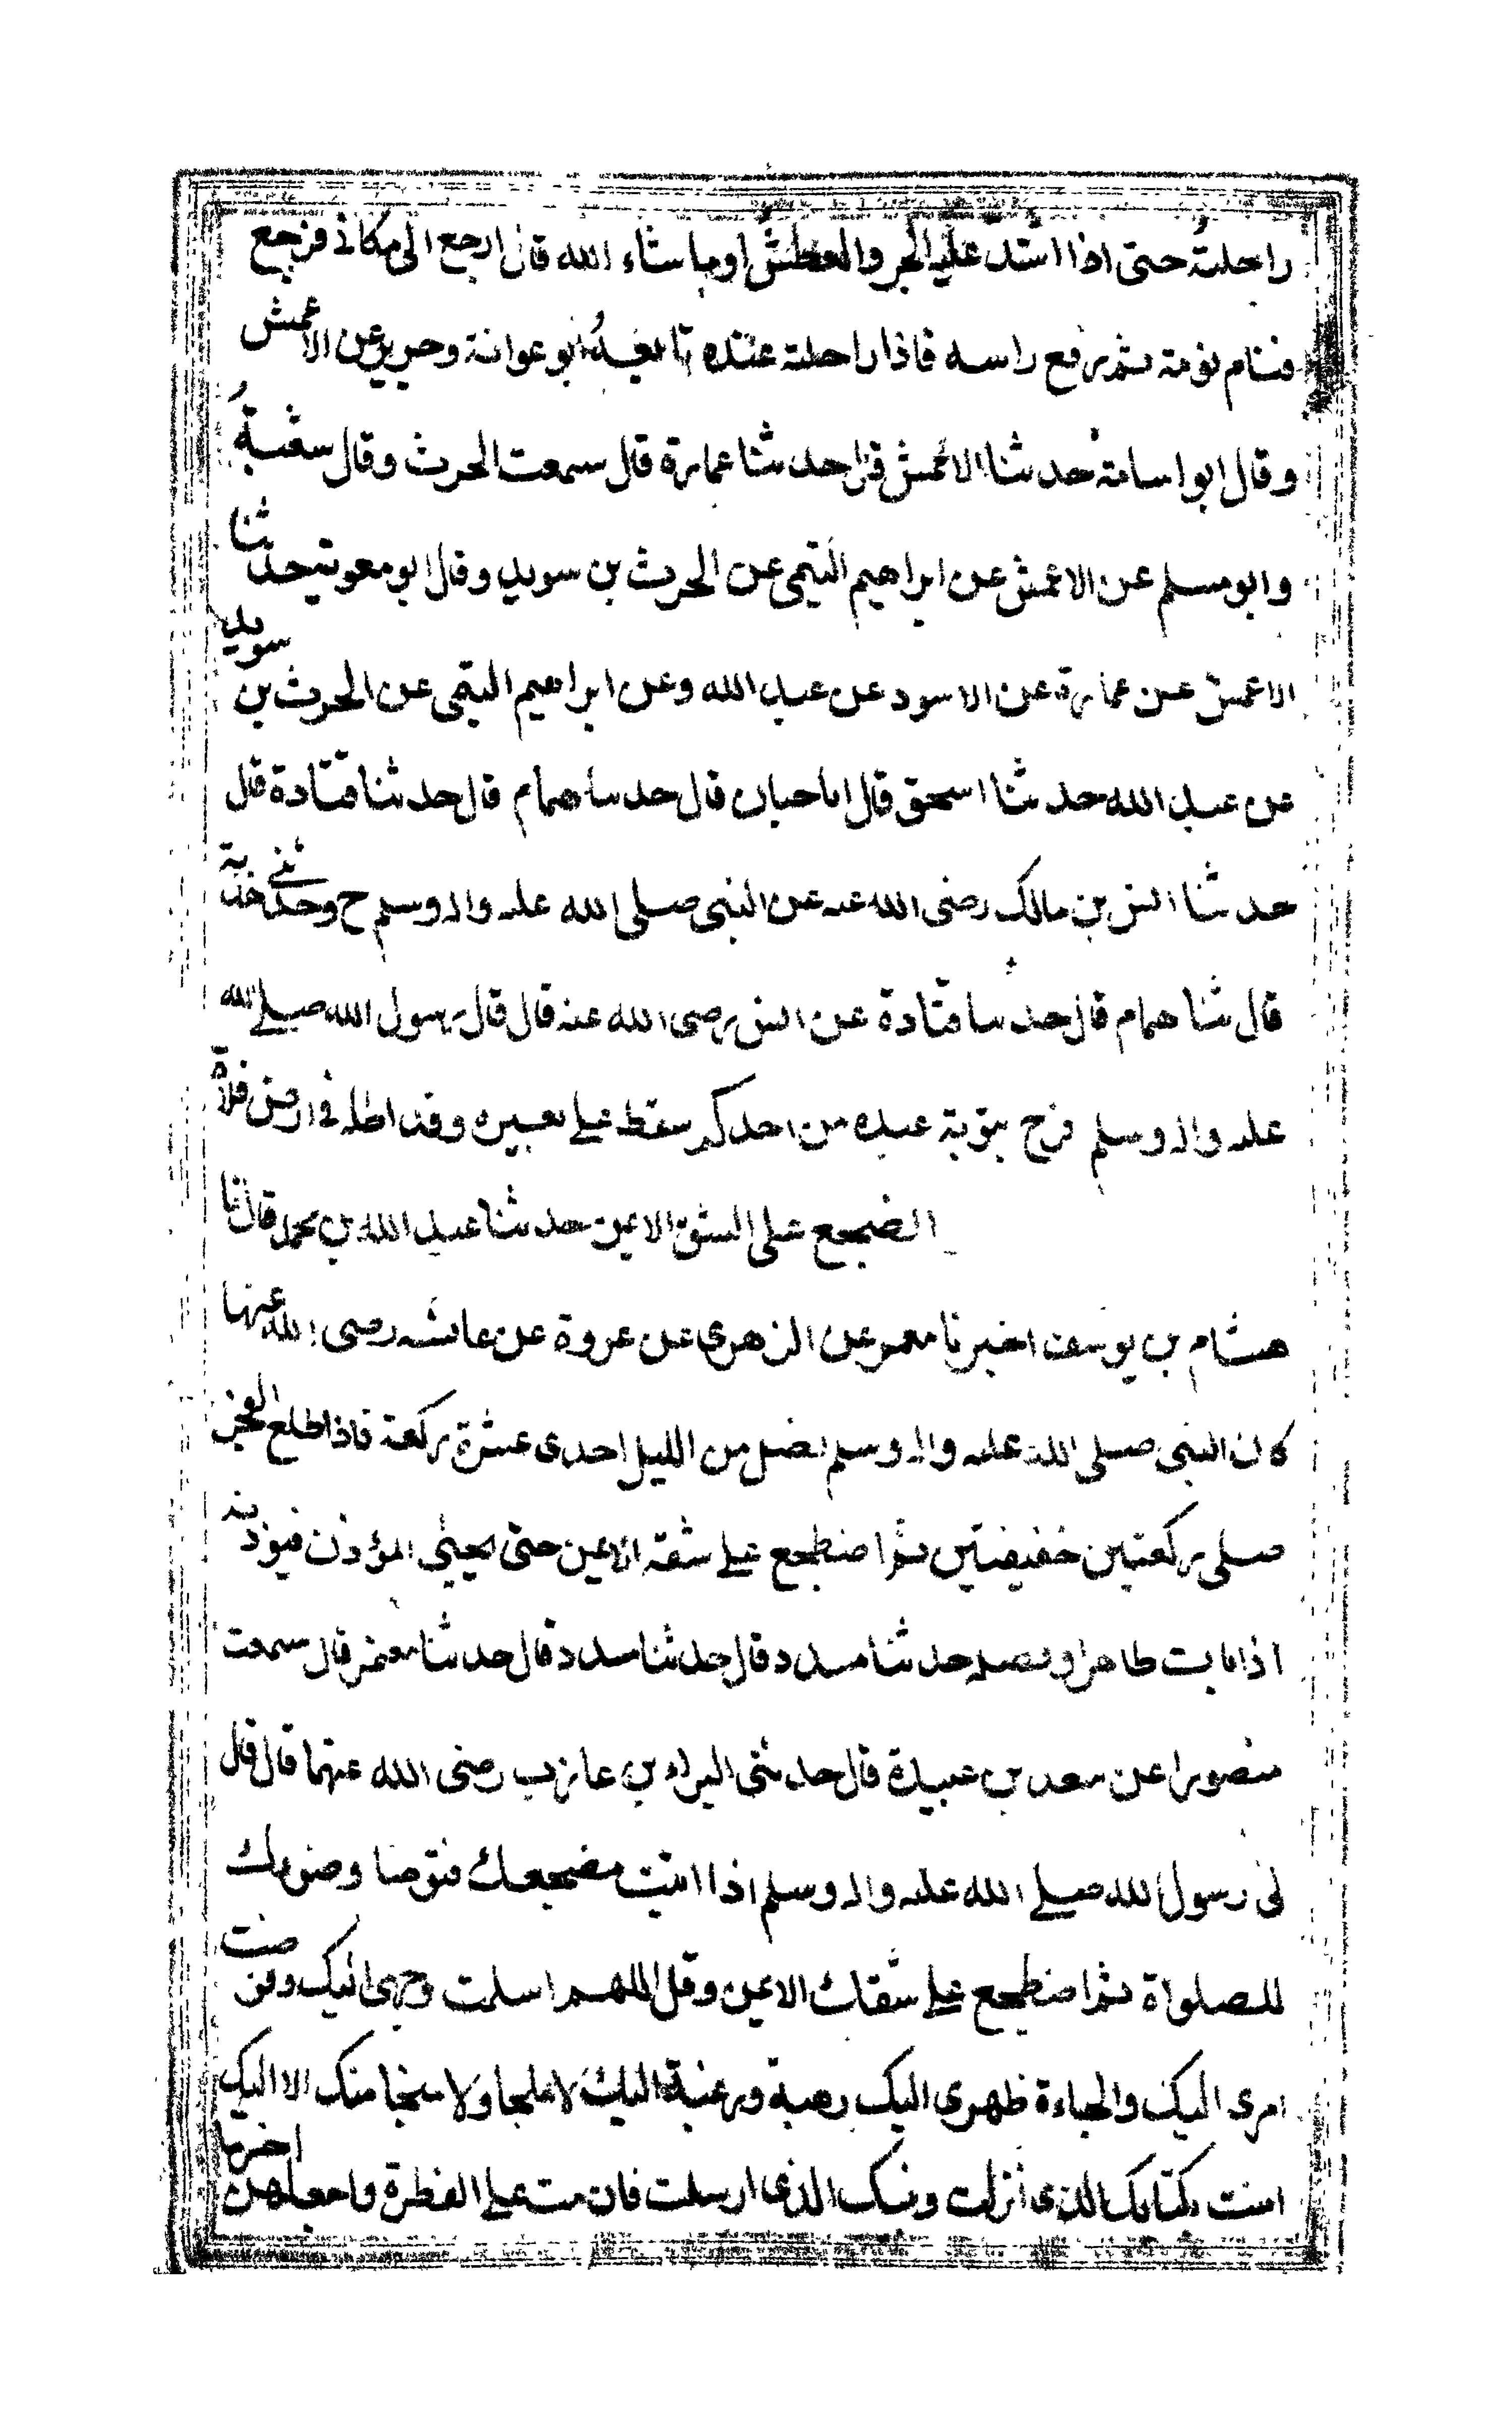 راحلته حتى اذا اشتد عليه الحر والعطش او ما شاء الله قال ارجع الى مكانى فرجع
فنام نومة ثم رفع راسه فاذا راحلته عنده تابعه ابو عوانة وجرير عن الاعمش
وقال ابو اسامة حدثنا الاعمش قال حدثنا عمارة قال سمعت الحرث وقال سعبة
وابو مسلم عن الاعمش عن ابراهيم التيمى عن الحرث بن سويد وقال ابو معوية حدثنا
الاعمش عن عمارة عن الاسود عن عبد الله وعن ابراهيم التيمى عن الحرث بن سويد
عن عبد الله حدثنا اسحق قال انا حبان قال حدثنا همام قال حدثنا قتادة قال
حدثنا انس بن مالك رضى الله عنه عن النبى صلى الله عليه واله وسلم ح وحدثنى هدبة
قال ثنا همام قال حدثنا قتادة عن انس رضى الله عنه قال قال رسول الله صلى الله
عليه واله وسلم فرح بتوبة عبده من احدكم سقط على بعيره وقد اضله فى ارض فلاة
الضجع على الشق الايمن حدثنا عبد الله بن محمد قال ثنا
هشام بن يوسف اخبرنا معمر عن الزهرى عن عروة عن عائشه رضى الله عنها
كان النبى صلى الله عليه واله وسلم يصل من الليل احدى عشرة ركعة فاذا طلع الفجر
صلى ركعتين خفيفتين ثم اضطجع على شقه الايمن حتى يجيئ المؤذن فيؤذنه
اذا بات طاهرا وفضله حدثنا مسدد قال حدثنا مسدد قال حدثنا معتمر قال سمعت
منصورا عن سعد بن عبيدة قال حدثنى البراء بن عازب رضى الله عنهما قال قال
لى رسول الله صلى الله عليه واله وسلم اذا اتيت مضجعك فتوضا وضوءك
للصلواة ثم اضطجع على شقك الايمن وقل اللهم اسلمت وجهى اليك وفوضت
امرى اليك والجاءة ظهرى اليك رهبة ورغبة اليك لا ملجا ولا منجا منك الا اليك
امنت بكتابك الذى انزلت ونبيك الذى ارسلت فان مت على الفطرة واجعلهن اخرما